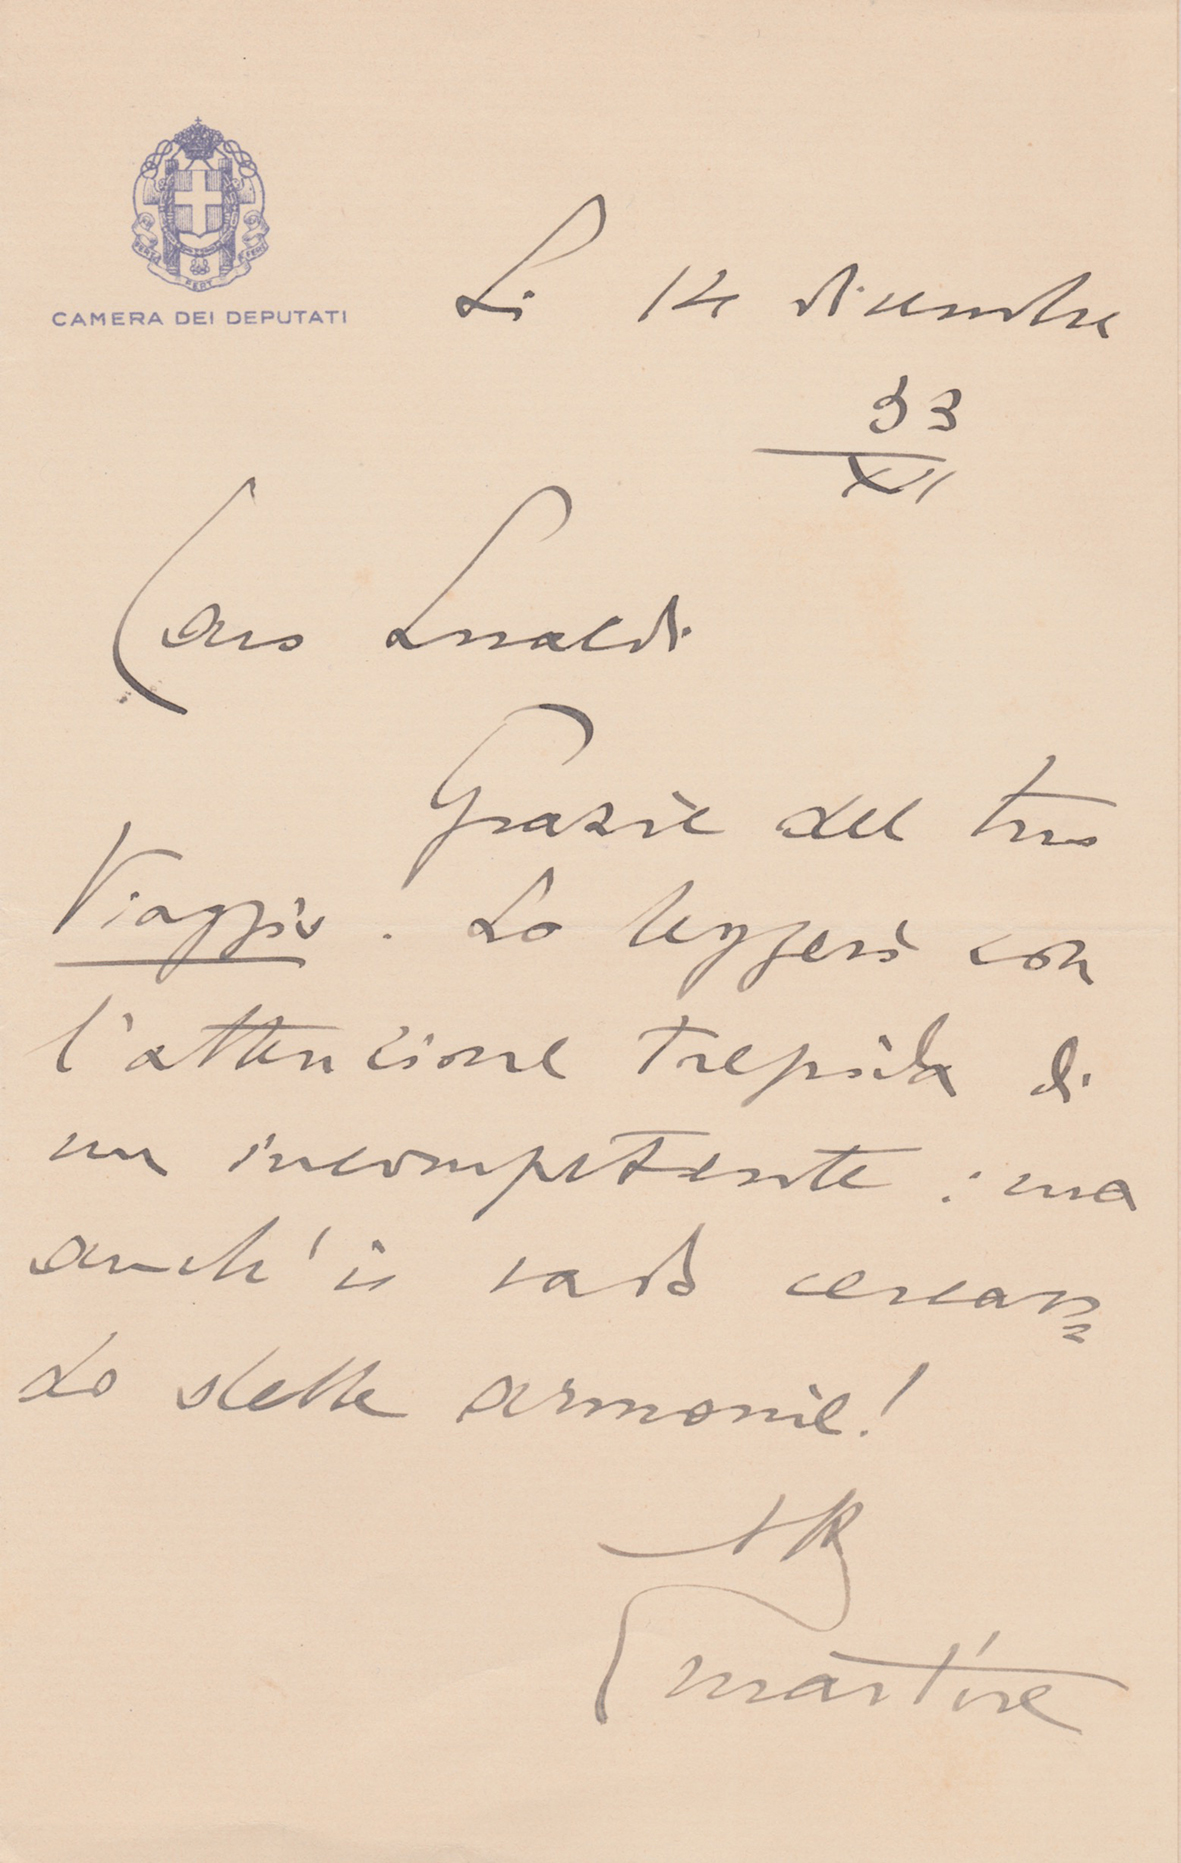 CAMERA DEI DEPUTATI
Li 14 dicembre
33
XII
Caro Lualdi
Grazie del tuo
Viaggio. Lo leggerò con
l'attenzione trepida di
un incompetente: ma
anch'io vado cercan=
do delle armonie!
Martire